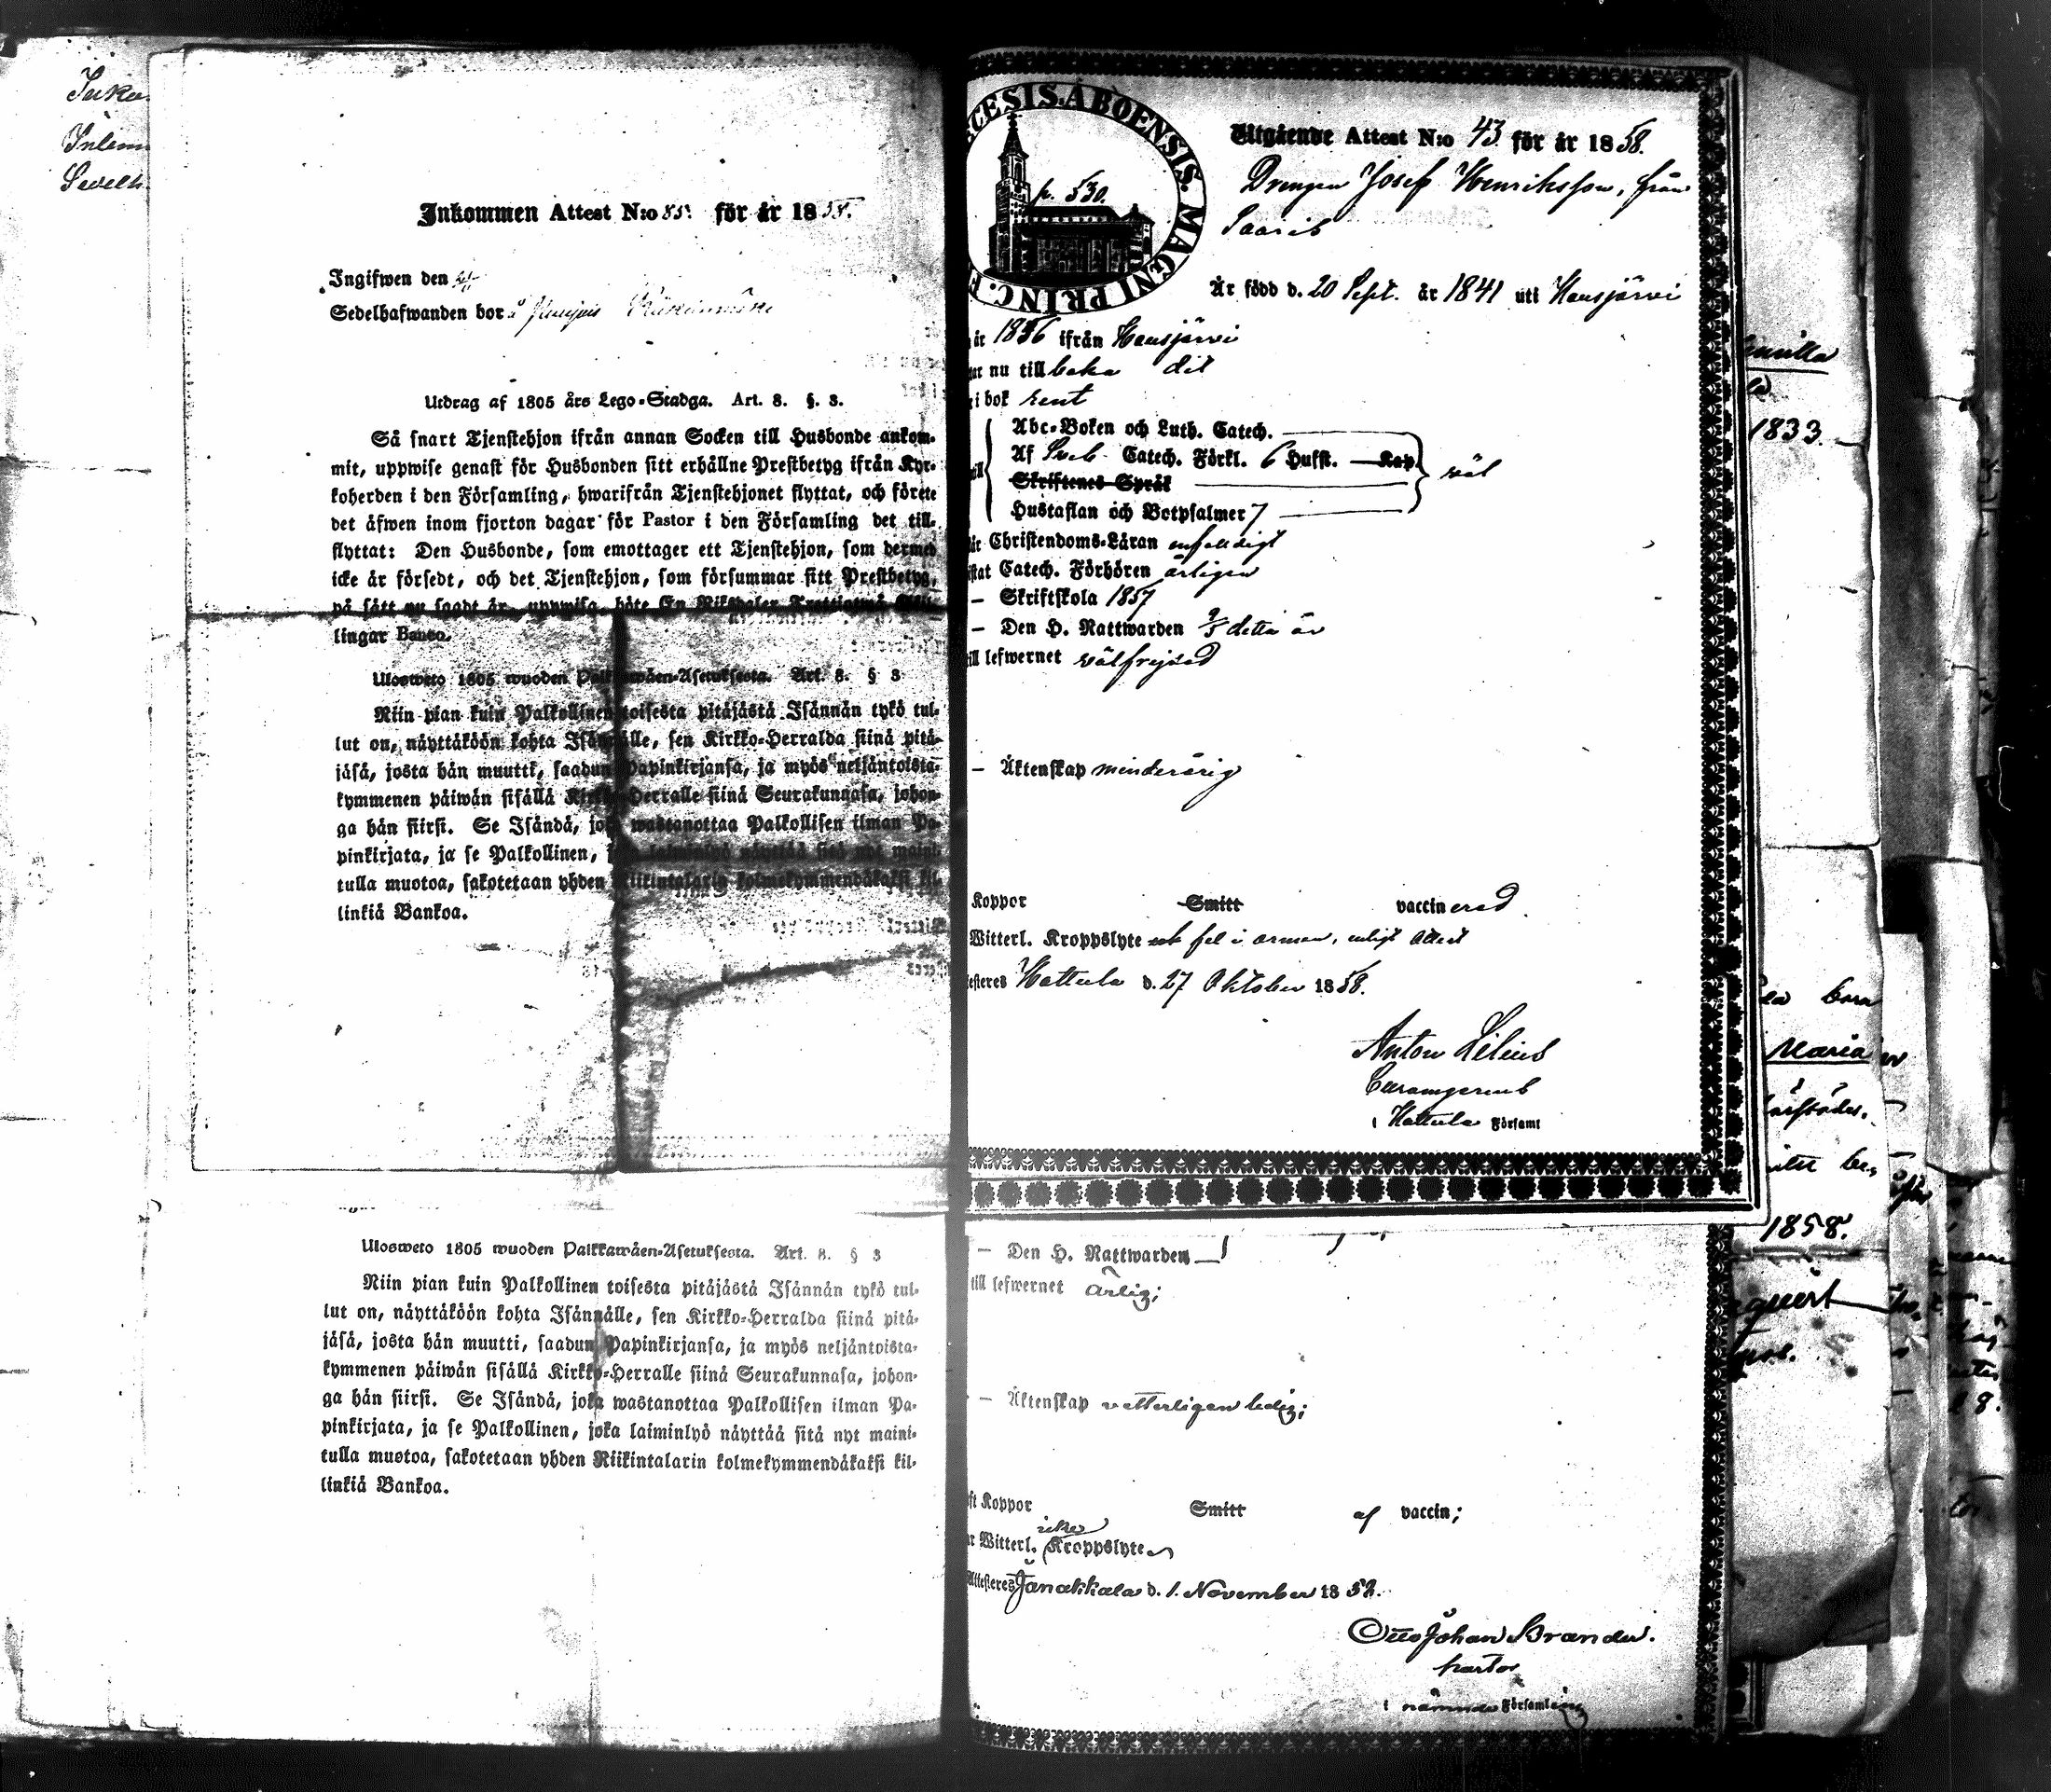 Inkommen Attest N:o 85. för år 1858.
Ingifwen den
Sedelhafwanden bor å
Utdrag af 1805 års Lego-Stadga. Art. 8. §. 3.
Så snart Tjenstehjon ifrån annan Socken till Husbonde ankom-
mit, uppwise genast för Husbonden sitt erhållne Prestbetyg ifrån Kyr-
koherden i den Församling, hwarifrån Tjenstehjonet flyttat, och förete
det äfwen inom fjorton dagar för Pastor i den Församling det till-
flyttat: Den Husbonde, som emottager ett Tjenstehjon, som dermed
icke är försedt, och det Tjenstehjon, som försummar sitt Prestbetyg,
på sätt nu sagdt är, uppwisa, böte En Riksdaler Trettiotwå Skil-
lingar Banco.
Ulosweto 1805 wuoden Palkkawäen-Asetuksesta. Art. 8. § 3
Niin pian kuin Palkollinen toisesta pitäjästä Isännän tykö tul-
lut on, näyttäköön kohta Isännälle, sen Kirkko-Herralda siinä pitä-
jäsä, josta hän muutti, saadun Papinkirjansa, ja myös neljäntoista-
kymmenen päiwän sisällä Kirkko-Herralle siinä Seurakunnasa, johon-
ga hän siirsi. Se Isändä, joka wastanottaa Palkollisen ilman Pa-
pinkirjata, ja se Palkollinen, joka laiminlyö näyttää sitä nyt maini-
tulla muotoa, sakotetaan yhden Riikintalarin kolmekymmendäkaksi kil-
linkiä Bankoa.
Ulosweto 1805 wuoden Palkkawäen-Asetuksesta. Art. 8. § 3
Niin pian kuin Palkollinen toisesta pitäjästä Isännän tykö tul-
lut on, näyttäköön kohta Isännälle, sen Kirkko-Herralda siinä pitä-
jäsä, josta hän muutti, saadun Papinkirjansa, ja myös neljäntoista-
kymmenen päiwän sisällä Kirkko-Herralle siinä Seurakunnasa, johon-
ga hän siirsi. Se Isändä, joka wastanottaa Palkollisen ilman Pa-
pinkirjata, ja se Palkollinen, joka laiminlyö näyttää sitä nyt maini-
tulla muotoa, sakotetaan yhden Riikintalarin kolmekymmendäkaksi kil-
linkiä Bankoa.
CESIS. ABOENSIS. MAGNI PRINC. F
p. 530.
Utgående Attest N:o 43 för år 1858.
Drengen Josef Henriksson, från
Saaris
Är född d. 20 Sept. år 1841 uti Hausjärvi
år 1856 ifrån Hausjärvi
nu tillbaka dit
i bok rent
Abc-Boken och Luth. Catech.
Af Sveb. Catech. Förkl. 6 Hufst. Kap. väl
Skriftenes Språk
Hustaflan och Botpsalmer 7
Christendoms-Läran enfaldigt
Catech. Förhören årligen
— Skriftskola 1857
— Den H. Nattwarden 9/5 detta år
till lefwernet välfrejdad
— Äktenskap minderårig
Koppor Smitt vaccinerad.
Witterl. Kroppslyte ett fel i armen, enligt Attest
Hattula d. 27 Oktober 1858.
Anton Lilius
i Hattula Församl
— Den H. Nattwarden
till lefwernet ärlig;
— Äktenskap vetterligen ledig;
Koppor Smitt af vaccin;
Witterl. icke Kroppslyte
Attesteres Janakkala d. 1. November 1858.
Otto Johan Brander.
Pastor
i nämnde Församling
1833.
Maria
1858.